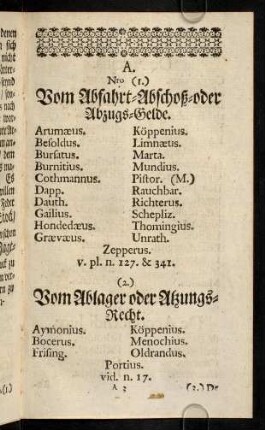 A.
Nro (1.)
Vom Abfahrt-Abschoß-oder
Abzugs-Gelde.
Arumæus. Köppenius.
Besoldus. Limnæus.
Bursatus. Marta.
Burnitius. Mundius.
Cothmannus. Pistor. (M.)
Dapp. Rauchbar.
Dauth. Richterus.
Gailius. Schepliz.
Hondedæus. Thomingius.
Grævæus. Unrath.
Zepperus.
v. pl. n. 127. & 341.
(2.)
Vom Ablager oder Atzungs-
Recht.
Aymonius. Köppenius.
Bocerus. Menochius.
Frising. Oldrandus.
Portius.
vid. n. 17.
A 2 (3.) De